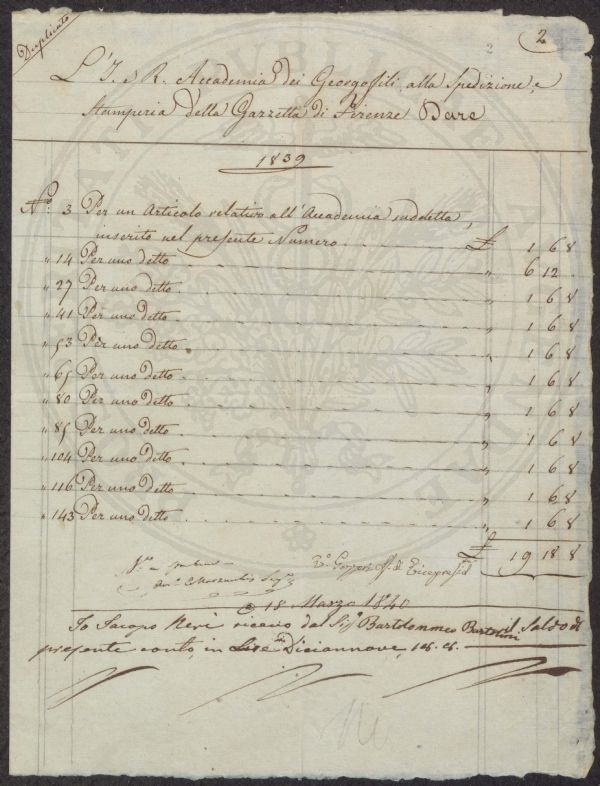 Duplicato
2
2
L'I. e R. Accademia dei Georgofili, alla Spedizione, e
Stamperia della Gazzetta di Firenze Dare
1839
N.º 3 Per un Articolo relativo all'Accademia suddetta,
inserito nel presente Numero £ 1 6 8
" 14 Per uno detto " 6 12 .
" 27 Per uno detto " 1 6 8
" 41 Per uno detto " 1 6 8
" 53 Per uno detto " 1 6 8
" 65 Per uno detto " 1 6 8
" 80 Per uno detto " 1 6 8
" 85 Per uno detto " 1 6 8
" 104 Per uno detto " 1 6 8
" 116 Per uno detto " 1 6 8
" 143 Per uno detto " 1 6 8
£ 19 18 8
18 Marzo 1840
Io Jacopo Neri ricevo dal Sig. Bartolommeo Bartolini il Saldo del
presente conto, in Lire Diciannove, 18. 8.